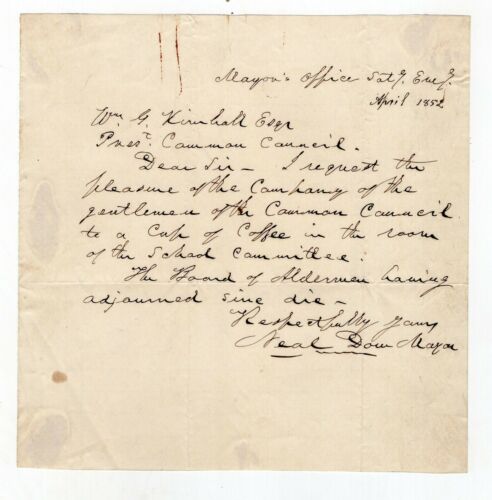 Mayor's Office Saty. Eveg.
April 1852
Wm G. Kimball Esqr
Prest. Common Council.
Dear Sir - I request the
pleasure of the Company of the
gentlemen of the Common Council
to a Cup of Coffee in the room
of the School Committee.
The Board of Aldermen having
adjourned sine die -
Respectfully yours
Neal Dow Mayor